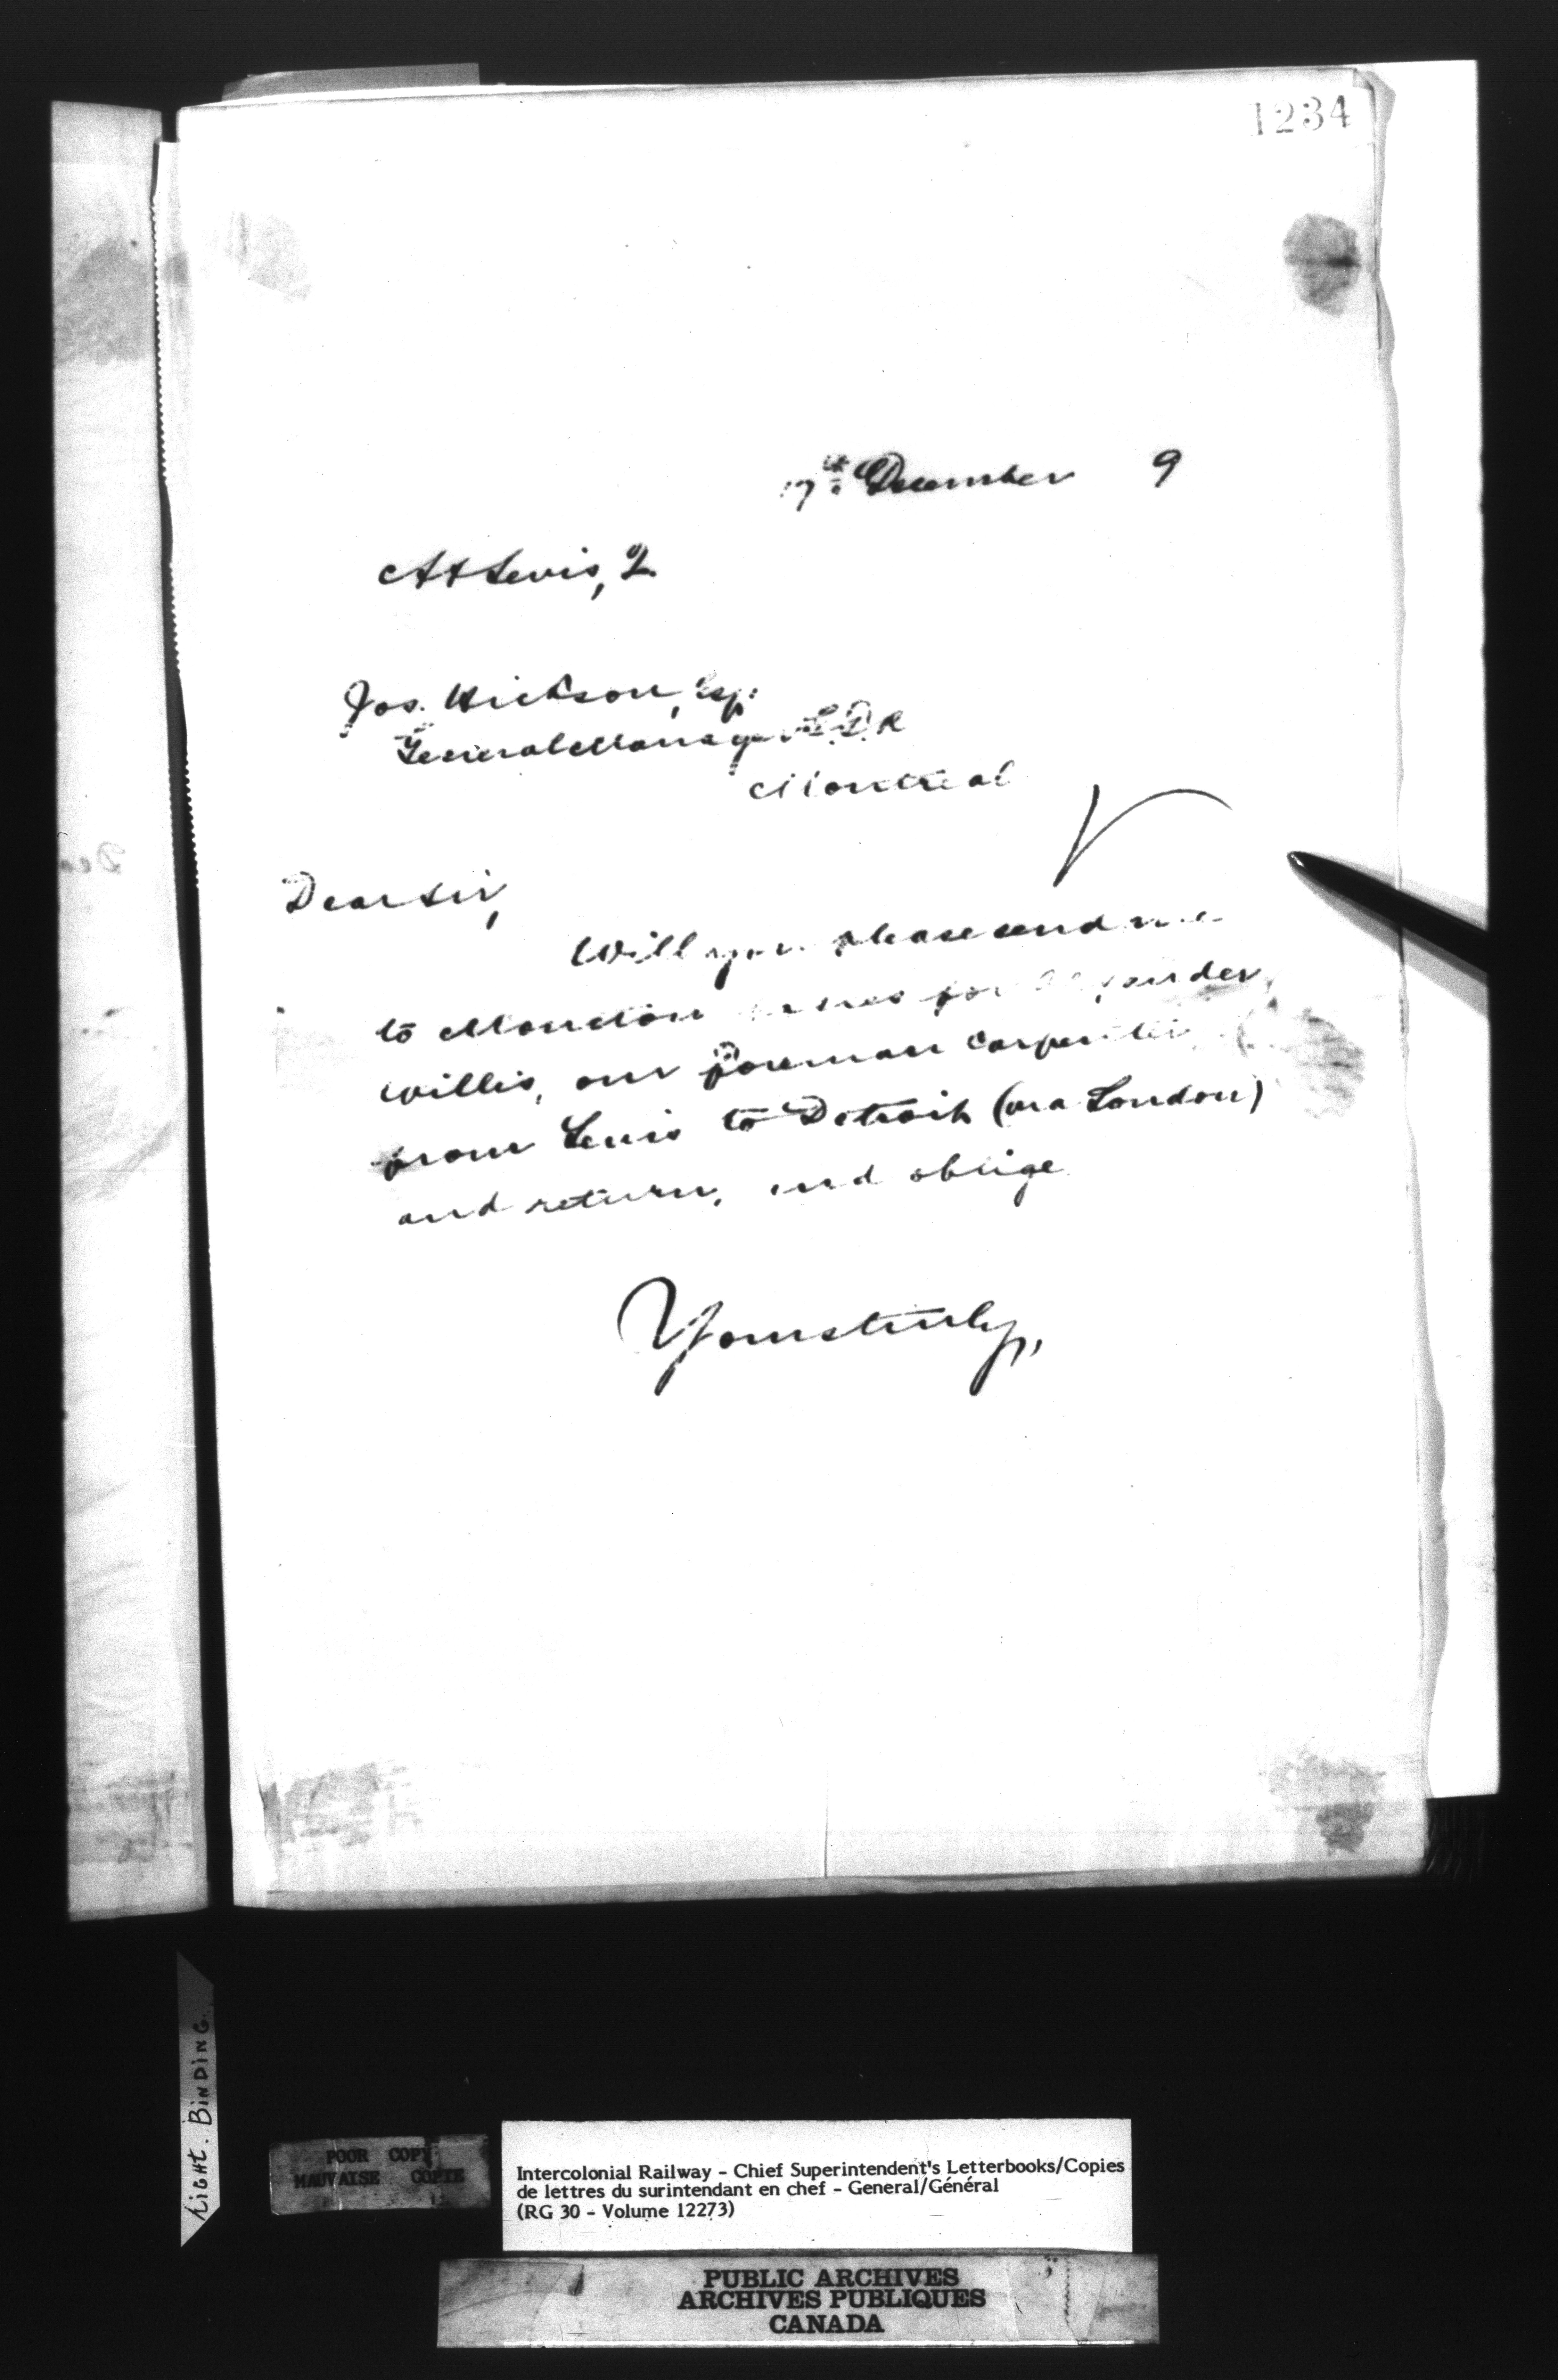 1234
17th December 9
At Levis, Q.
Jos. Hickson, Esq:
General Manager G.T.R
Montreal
Dear Sir,
Will you please send me
to Moncton passes for Alexander
Willis, our foreman carpenter
from Levis to Detroit (via London)
and return, and oblige
Yours truly,
TIGHT. BINDING.
POOR COPY
MAUVAISE COPIE
Intercolonial Railway - Chief Superintendent's Letterbooks/Copies
de lettres du surintendant en chef - General/Général
(RG 30 - Volume 12273)
PUBLIC ARCHIVES
ARCHIVES PUBLIQUES
CANADA